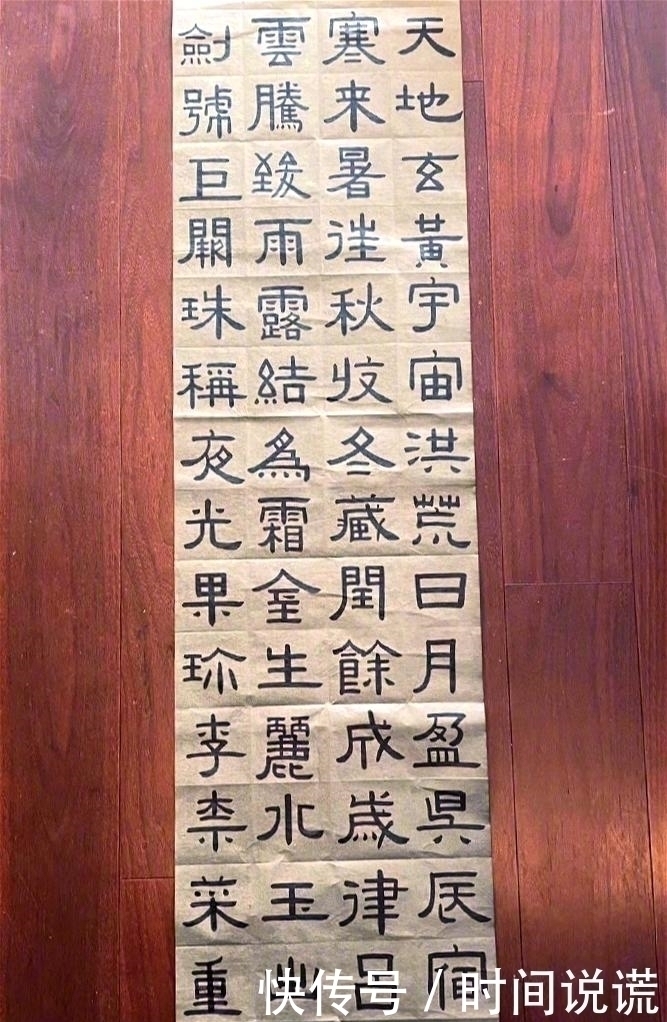 天地玄黃宇宙洪荒日月盈昃辰宿
寒来暑往秋收冬藏閏餘成歲律呂
雲騰致雨露結為霜金生麗水玉出
劍號巨闕珠稱夜光果珎李柰菜重
快传号/时间说谎